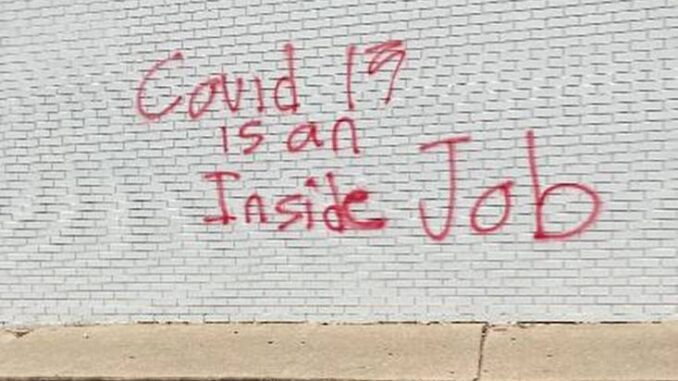 Covid 19
is an
Inside Job